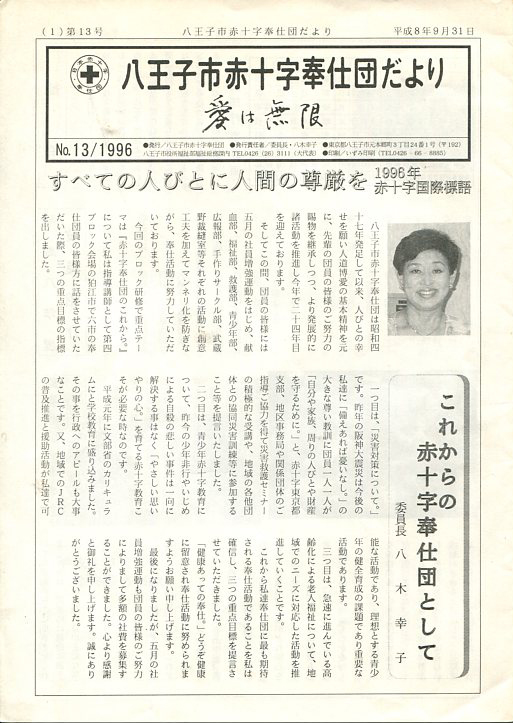 (1)第13号
八王子市赤十字奉仕団だより
平成8年9月31日
八王子市赤十字奉仕団だより
愛は無限
No.13/1996
●発行／八王子市赤十字奉仕団 ●発行責任者／委員長・八木幸子 ●東京都八王子市元本郷町3丁目24番1号（〒192）
八王子市役所福祉部福祉総務課内 TEL0426（26）3111（大代表） ●印刷／いずみ印刷（TEL0426－66－8885）
すべての人びとに人間の尊厳を
1996年
赤十字国際標語
八王子市赤十字奉仕団は昭和四
十七年発足して以来、人びとの幸
せを願い人道博愛の基本精神を元
に、先輩の団員の皆様のご努力の
賜物を継承しつつ、より発展的に
諸活動を推進し今年で二十四年目
を迎えております。
そしてこの間、団員の皆様には
五月の社員増強運動をはじめ、献
血部、福祉部、救護部、青少年部、
広報部、手作りサークル部、武蔵
野裁縫室等それぞれの活動に創意
工夫を加えてマンネリ化を防ぎな
がら、奉仕活動に努力していただ
いております。
今回のブロック研修で重点テー
マは『赤十字奉仕団のこれから。』
について私は指導講師として第四
ブロック会場の狛江市で六市の奉
仕団員の皆様方に話をさせていた
だいた際、三つの重点目標の指標
を出しました。
これからの
赤十字奉仕団として
委員長 八木幸子
一つ目は「災害対策について。」
です。昨年の阪神大震災は今後の
私達に「備えあれば憂いなし。」の
大きな尊い教訓に団員一人一人が
「自分や家族、周りの人びとや財産
を守るために。」と、赤十字東京都
支部、地区事務局や関係団体のご
指導ご協力を得て災害救護セミナー
の積極的な受講や、地域の各他団
体との協同災害訓練等に参加する
こと等を提言いたしました。
二つ目は、青少年赤十字教育に
ついて、昨今の少年非行やいじめ
による自殺の悲しい事件は一向に
解決する事はなく「やさしい思い
やりの心。」を育てる赤十字教育こ
そが必要な時なのです。
平成元年に文部省のカリキュラ
ムにと学校教育に盛り込みました。
その事を行政へのアピールも大事
なことです。又、地域でのJRC
の普及推進と援助活動が私達で可
能な活動であり、理想とする青少
年の健全育成の課題であり重要な
活動であります。
三つ目は、急速に進んでいる高
齢化による老人福祉について、地
域でのニーズに対応した活動を推
進していくことです。
これから私達奉仕団に最も期待
される奉仕活動であることを私は
確信し、三つの重点目標を提言さ
せていただきました。
「健康あっての奉仕。」どうぞ健康
に留意され奉仕活動に努められま
すようお願い申し上げます。
最後になりましたが、五月の社
員増強運動も団員の皆様のご努力
によりまして多額の社費を募集す
ることができました。心より感謝
と御礼を申し上げます。誠にあり
がとうございました。